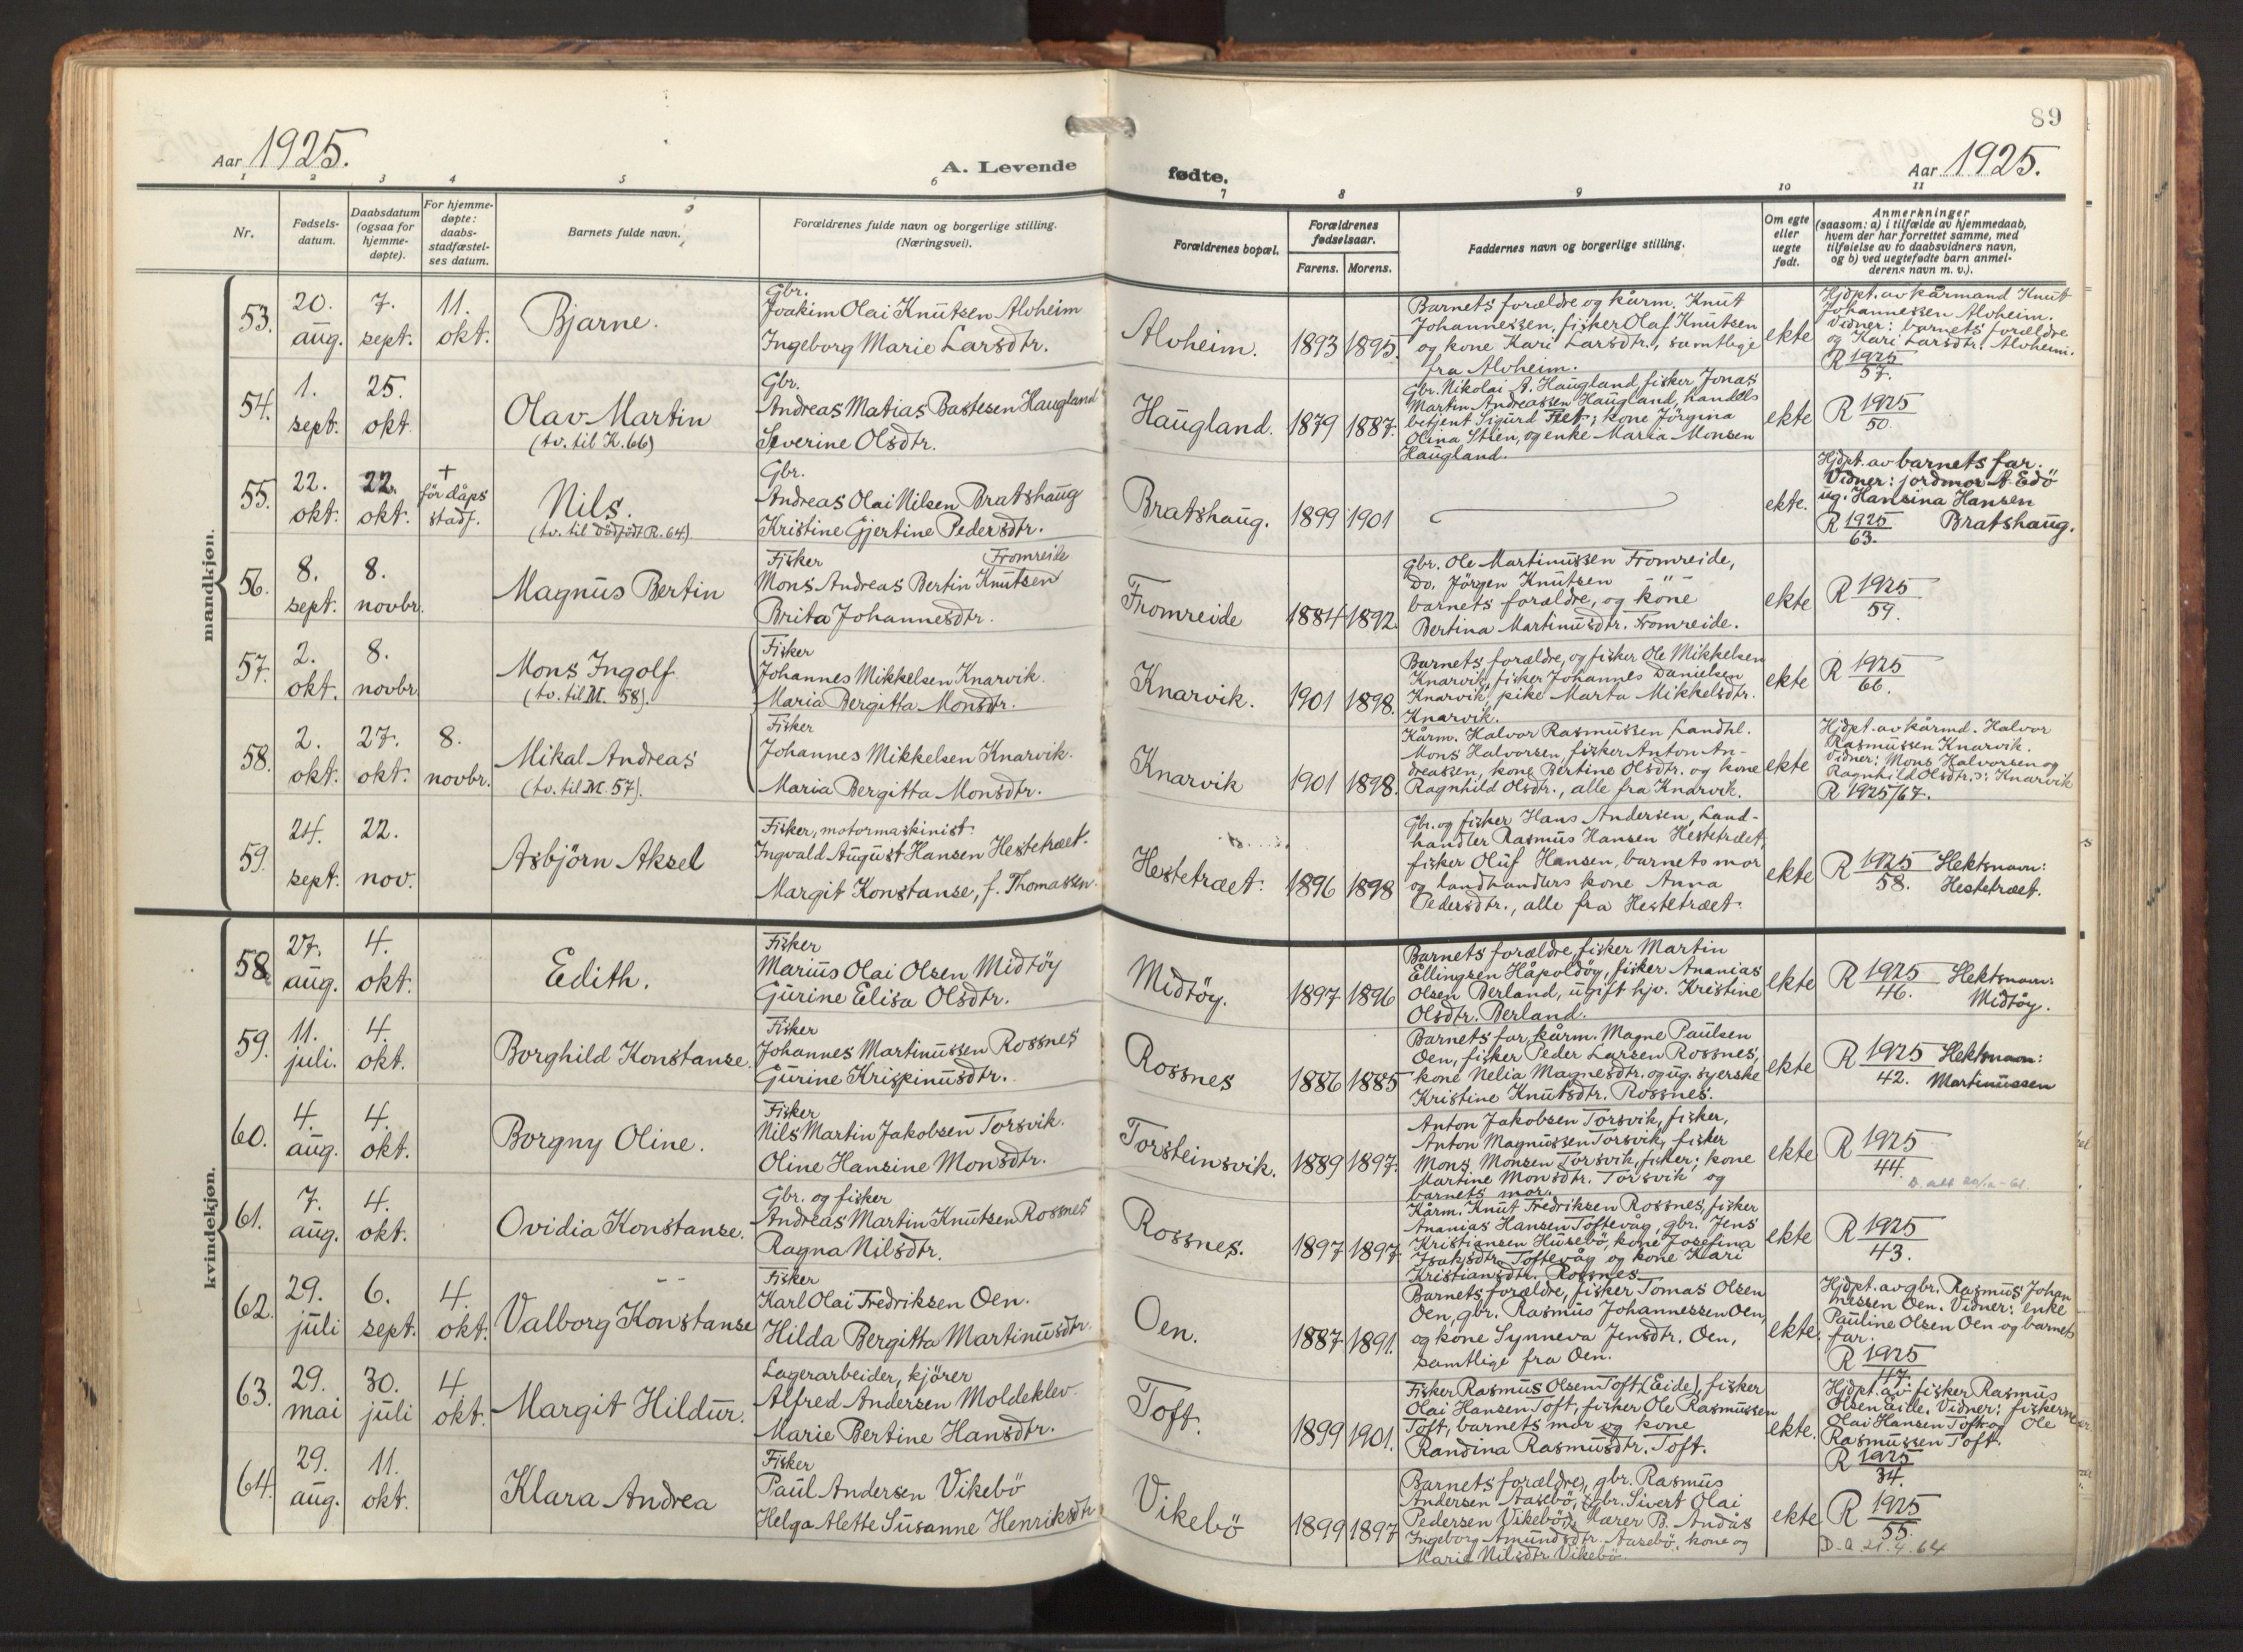 89
Aar 1925.
A. Levende
fødte.
Aar 1925.
1 2 3 4 5 6 7 8 9 10 11
Nr.
Fødsels-
datum.
Daabsdatum
(ogsaa for
hjemme-
døpte).
For hjemme-
døpte:
daabs-
stadfæstel-
ses datum.
Barnets fulde navn.
Forældrenes fulde navn og borgerlige stilling.
(Næringsvei).
Forældrenes bopæl.
Forældrenes
fødselsaar.
Farens. Morens.
Faddernes navn og borgerlige stilling.
Om egte
eller
uegte
født.
Anmerkninger
(saasom: a) i tilfælde av hjemmedaab,
hvem der har forrettet samme, med
tilføielse av to daabsvidners navn,
og b) ved uegtefødte barn anmel-
derens navn m. v.).
mandkjøn.
53.
20.
aug.
7.
sept.
11.
okt.
Bjarne.
Gbr.
Joakim Olai Knutsen Alvheim
Ingeborg Marie Larsdtr.
Alvheim.
1893 1895.
Barnets forældre og kårm. Knut
Johannessen, fisker Olaf Knutsen
og kone Kari Larsdtr., samtlige
fra Alvheim.
ekte
Hjdpt. av kårmand Knut
Johannessen Alvheim.
Vidner: barnets forældre
og Kari Larsdtr. Alvheim.
R 1925
57.
54.
1.
sept.
25.
okt.
Olav Martin
(tv. til K. 66)
Gbr.
Andreas Matias Bastesen Haugland
Severine Olsdtr.
Haugland.
1879 1887.
Gbr. Nikolai A. Haugland, fisker Jonas
Martin Andreassen Haugland, handels
betjent Sigurd Flet; kone Jörgina
Olina Stien, og enke Maria Monsen
Haugland.
ekte
R 1925
50.
55.
22.
okt.
22.
okt.
+
för dåps
stadf.
Nils.
(tv. til dödfödt R. 64)
Gbr.
Andreas Olai Nilsen Bratshaug
Kristine Gjertine Pedersdtr.
Bratshaug.
1899 1901
ekte.
Hjdpt. av barnets far.
Vidner: jordmor A. Edö
ug. Hansina Hansen
R 1925 Bratshaug.
63.
56.
8.
sept.
8.
novbr.
Magnus Bertin
Fisker Fromreide
Mons Andreas Bertin Knutsen
Brita Johannesdtr.
Fromreide
1884 1892.
Gbr. Ole Martinussen Fromreide,
Do. Jörgen Knutsen - " -
barnets forældre, og kone
Bertina Martinusdtr. Fromreide.
ekte
R 1925
59.
57.
2.
okt.
8.
novbr.
Mons Ingolf
(tv. til M. 58).
Fisker
Johannes Mikkelsen Knarvik.
Maria Bergitta Monsdtr.
Knarvik.
1901 1898.
Barnets forældre, og fisker Ole Mikkelsen
Knarvik, fisker Johannes Danielsen
Knarvik, pike Marta Mikkelsdtr.
Knarvik.
ekte
R 1925
66.
58.
2.
okt.
27.
okt.
8.
novbr.
Mikal Andreas
(tv. til M. 57).
Fisker
Johannes Mikkelsen Knarvik.
Maria Bergitta Monsdtr.
Knarvik
1901 1898.
Kårm. Halvor Rasmussen Landhl.
Mons Halvorsen, fisker Anton An-
dreassen, kone Bertine Olsdtr. og kone
Ragnhild Olsdtr., alle fra Knarvik.
ekte
Hjdpt. av kårmd. Halvor
Rasmussen Knarvik.
Vidner: Mons Halvorsen og
Ragnhild Olsdtr. : Knarvik
R 1925/67.
59.
24.
sept.
22.
nov.
Asbjörn Aksel
Fisker, motormaskinist.
Ingvald August Hansen Hestetræet.
Margit Konstanse, f. Thomassen.
Hestetræet.
1896 1898
Gbr. og fisker Hans Andersen, Land-
handler Rasmus Hansen Hestetræet,
fisker Oluf Hansen, barnets mor
og landhandlers kone Anna
Pedersdtr., alle fra Hestetræet.
ekte
R 1925 Slektsnavn:
58. Hestetræet.
kvindekjøn.
58
27.
aug.
4.
okt.
Edith.
Fisker
Marius Olai Olsen Midtöy
Gurine Elisa Olsdtr.
Midtöy.
1897 1896
Barnets forældre, fisker Martin
Ellingsen Håpoldöy, fisker Ananias
Olsen Berland, ugift hjv. Kristine
Olsdtr. Berland.
ekte
R 1925 Slektsnavn:
46. Midtöy.
59.
11.
juli.
4.
okt.
Borghild Konstanse.
Fisker
Johannes Martinussen Rossnes
Gurine Krispinusdtr.
Rossnes
1886 1885
Barnets far, kårm. Magne Paulsen
Oen, fisker Peder Larsen Rossnes,
kone Nelia Magnesdtr. og ug. syerske
Kristine Knutsdtr. Rossnes.
ekte
R 1925 Slektsnavn:
42. Martinussen
60.
4.
aug.
4.
okt.
Borgny Oline.
Fisker
Nils Martin Jakobsen Torsvik.
Oline Hansine Monsdtr.
Torsteinsvik.
1889 1897.
Anton Jakobsen Torsvik, fisker,
Anton Magnussen Torsvik, fisker
Mons Monsen Torsvik, fisker; kone
Martine Monsdtr. Torsvik og
barnets mor.
ekte
R 1925
44.
61.
7.
aug.
4.
okt.
Ovidia Konstanse.
Gbr. og fisker
Andreas Martin Knutsen Rossnes
Ragna Nilsdtr.
Rossnes.
1897 1897.
Kårm. Knut Fredriksen Rossnes, fisker
Ananias Hansen Toftevåg, gbr. Jens
Kristiansen Husebö, kone Josefina
Isaksdtr. Toftevåg og kone Kari
Kristiansdtr. Rossnes.
ekte
R 1925
43.
62.
29.
juli
6.
sept.
4.
okt.
Valborg Konstanse
Fisker
Karl Olai Fredriksen Oen.
Hilda Bergitta Martinusdtr.
Oen.
1887 1891.
Barnets forældre, fisker Tomas Olsen
Oen, gbr. Rasmus Johannessen Oen,
og kone Synneva Jensdtr. Oen,
samtlige fra Oen.
ekte
Hjdpt. av gbr. Rasmus Johan
nessen Oen. Vidner: enke
Pauline Olsen Oen og barnets
far.
R 1925
47.
63.
29.
mai
30.
juli
4
okt.
Margit Hildur.
Lagerarbeider, kjörer
Alfred Andersen Moldeklev.
Marie Bertine Hansdtr.
Toft.
1899 1901.
Fisker Rasmus Olsen Toft (Eide), fisker
Olai Hansen Toft, fisker Ole Rasmussen
Toft, barnets mor og kone
Randina Rasmusdtr. Toft.
ekte.
Hjdpt. av fisker Rasmus
Olsen Eide. Vidner: fiskerne
Olai Hansen Toft og Ole
Rasmussen Toft.
R 1925
34.
64.
29.
aug.
11.
okt.
Klara Andrea
Fisker
Paul Andersen Vikebö
Helga Alette Susanne Henriksdtr
Vikebö
1899 1897
Barnets forældre, gbr. Rasmus
Andersen Aasebö, gbr. Sivert Olai
Pedersen Vikebö, lærer B. Andås
Ingeborg Amundsdtr. Aasebö, kone og
Marie Nilsdtr Vikebö.
ekte
R 1925
55.
D.a. 21.4.64